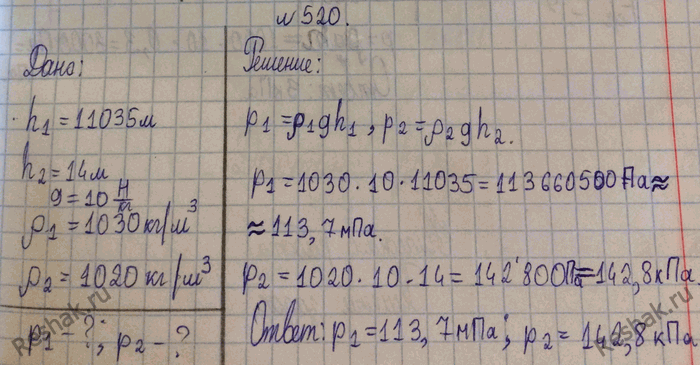 №520.
Дано:
h₁ = 11035 м
h₂ = 14 м
g = 10 Н/кг
ρ₁ = 1030 кг/м³
ρ₂ = 1020 кг/м³
p₁ - ?; p₂ - ?
Решение:
p₁ = ρ₁gh₁, p₂ = ρ₂gh₂.
p₁ = 1030 · 10 · 11035 = 113660500 Па ≈
≈ 113,7 мПа.
p₂ = 1020 · 10 · 14 = 142'800 Па = 142,8 кПа.
Ответ: p₁ = 113,7 мПа; p₂ = 142,8 кПа
Reshak.ru
Reshak.ru